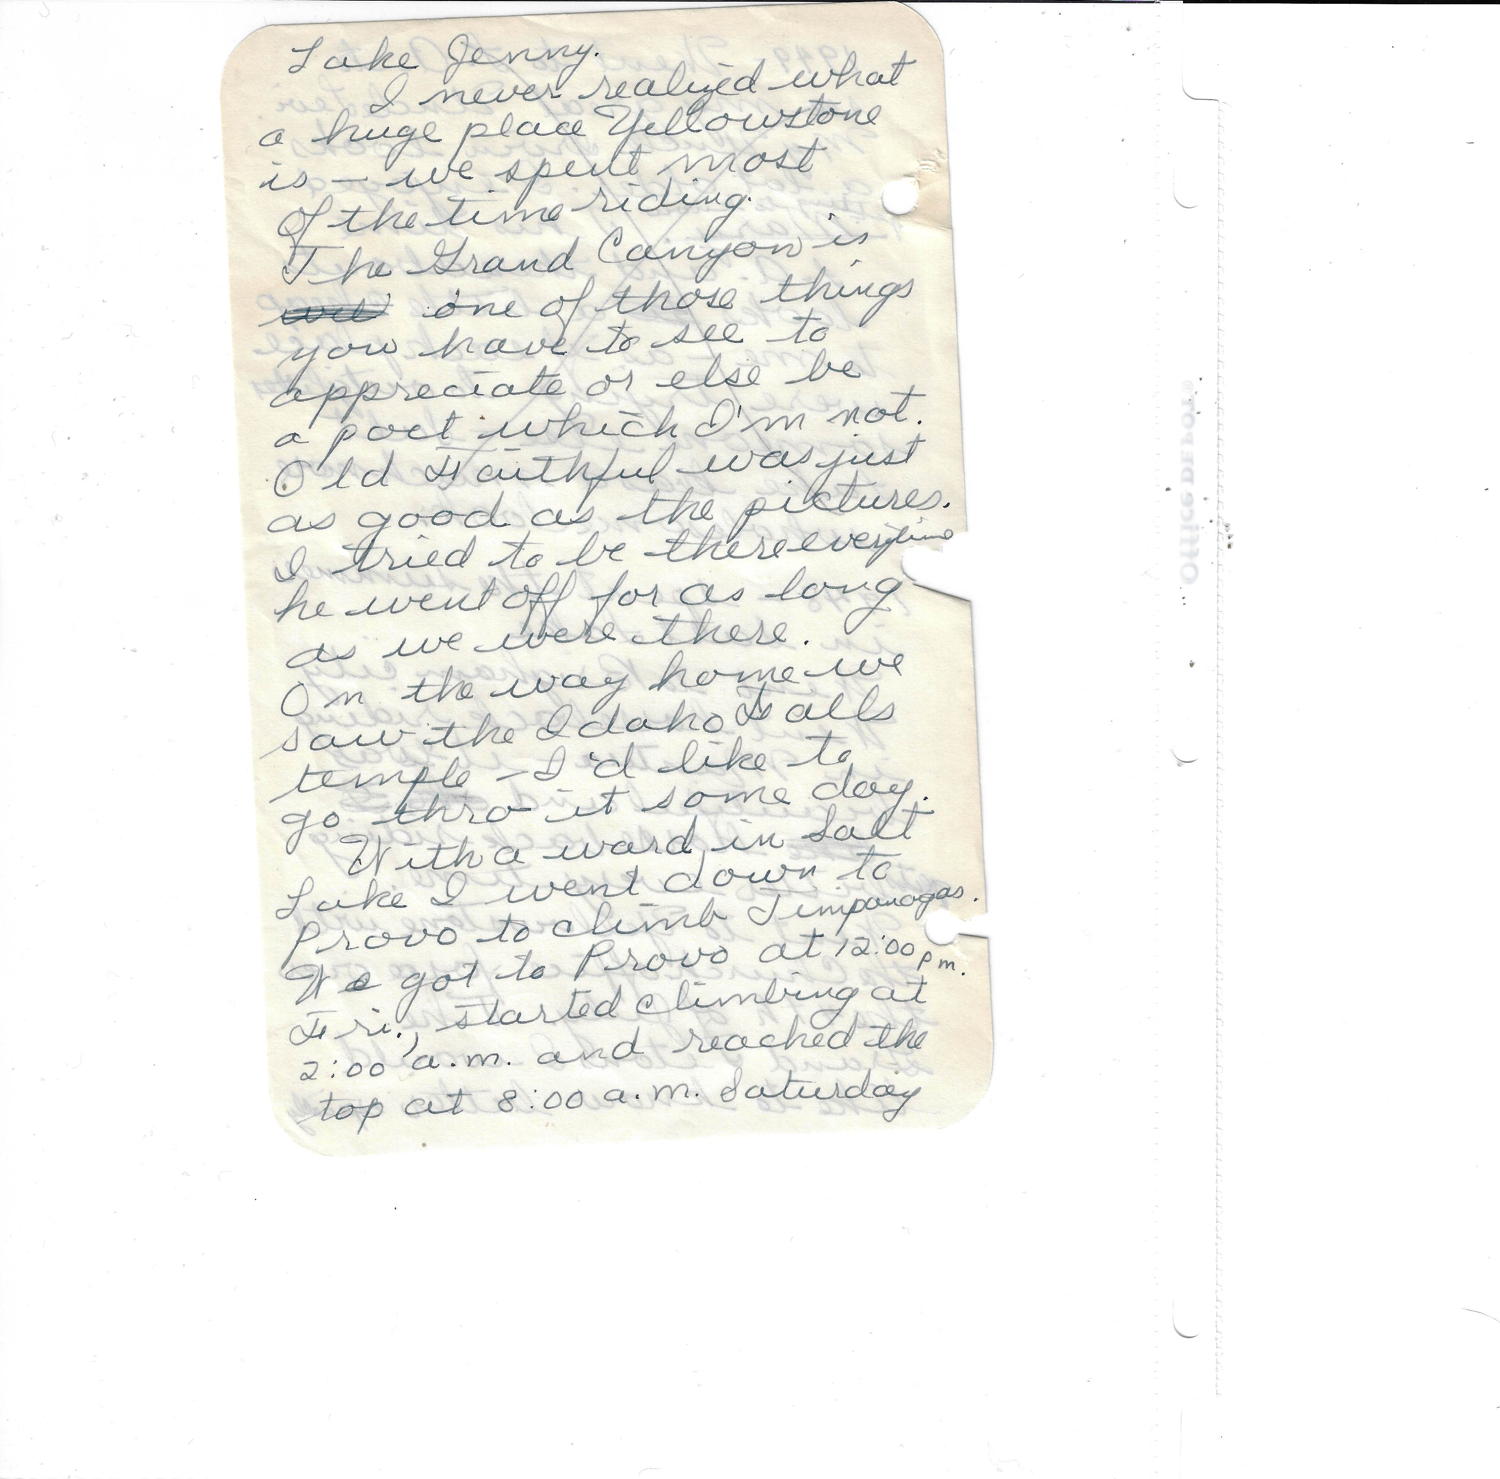 Lake Jenny.
I never realized what
a huge place Yellowstone
is – we spent most
of the time riding.
The Grand Canyon is
one of those things
you have to see to
appreciate or else be
a poet which I'm not.
Old Faithful was just
as good as the pictures.
I tried to be there everytime
he went off for as long
as we were there.
On the way home we
saw the Idaho Falls
temple – I'd like to
go thro it some day.
With a ward in Salt
Lake I went down to
Provo to climb Timpanogas.
We got to Provo at 12:00 pm.
Fri., started climbing at
2:00 a.m. and reached the
top at 8:00 a.m. Saturday
Office DEPOT